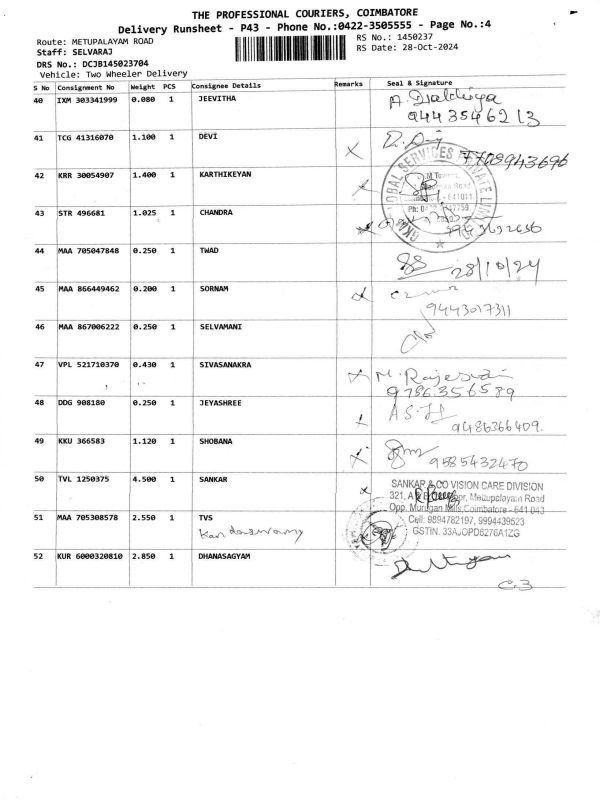 THE PROFESSIONAL COURIERS, COIMBATORE
Delivery Runsheet - P43 - Phone No.:0422-3505555 - Page No.:4
Route: METUPALAYAM ROAD
RS No.: 1450237
Staff: SELVARAJ
RS Date: 28-Oct-2024
DRS No.: DCJB145023704
Vehicle: Two Wheeler Delivery
S No Consignment No Weight PCS Consignee Details Remarks Seal & Signature
40 IXM 303341999 0.080 1 JEEVITHA
9443546213
41 TCG 41316070 1.100 1 DEVI
7708943696
42 KRR 30054907 1.400 1 KARTHIKEYAN
43 STR 496681 1.025 1 CHANDRA
44 MAA 705047848 0.250 1 TWAD
28/10/24
45 MAA 866449462 0.200 1 SORNAM
9443017311
46 MAA 867006222 0.250 1 SELVAMANI
47 VPL 521710370 0.430 1 SIVASANAKRA
9786356589
48 DDG 908180 0.250 1 JEYASHREE
9486366409.
49 KKU 366583 1.120 1 SHOBANA
9585432470
50 TVL 1250375 4.500 1 SANKAR
SANKAR & CO VISION CARE DIVISION
321, Mettupalayam Road
Opp. Murugan Mills, Coimbatore - 641 043
Cell: 9894782197, 9994439523
GSTIN. 33AJOPD6276A1ZG
51 MAA 705308578 2.550 1 TVS
Kandaswamy
52 KUR 6000320810 2.850 1 DHANASAGYAM
C.3